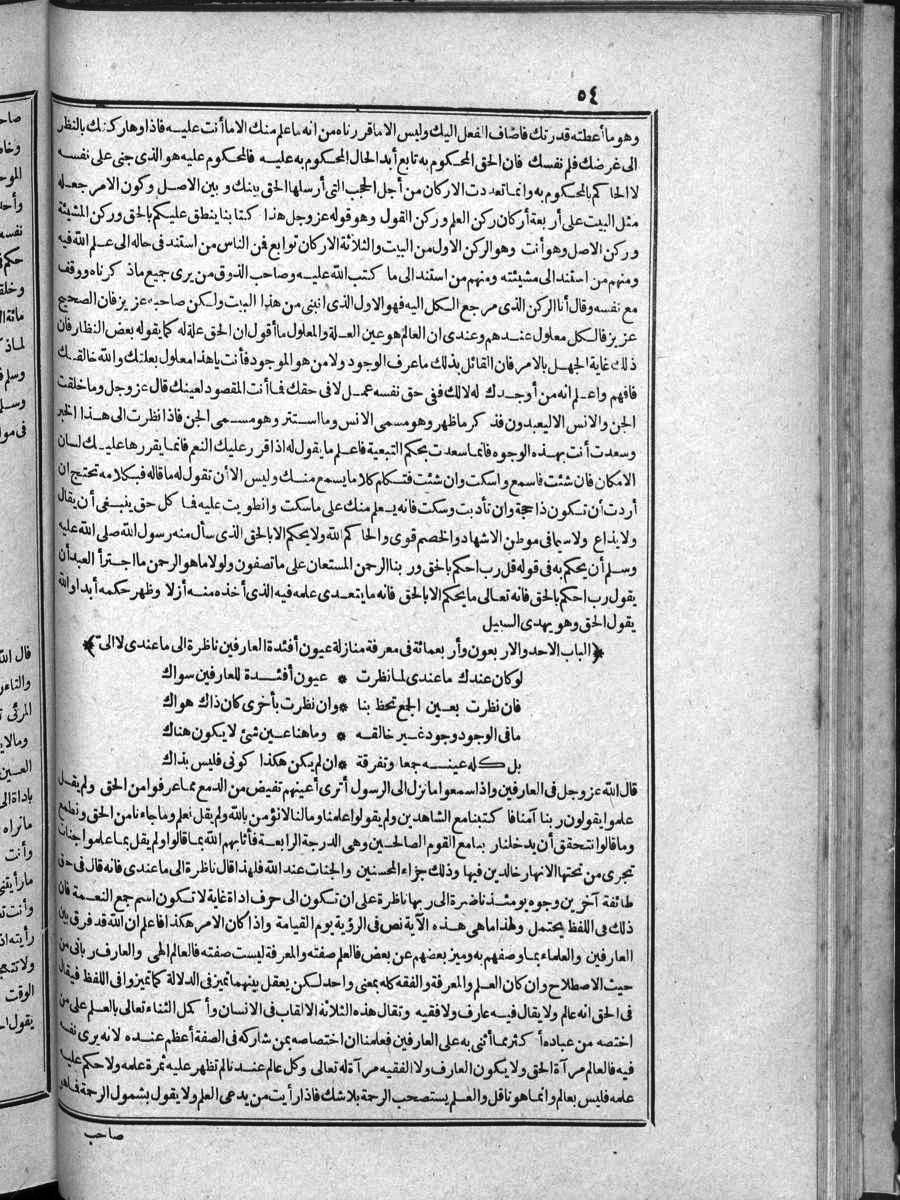 ٥٤
وهو ما أعطته قدرتك فاضاف الفعل اليك وليس الا ما قررناه من انه ما علم منك الا ما أنت عليه فاذا وهاركتك بالنظر
الى غرضك فلم نفسك فان الحق المحكوم به تابع أبدا لحال المحكوم به عليه فالمحكوم عليه هو الذى جنى على نفسه
لا الحاكم بالمحكوم به وانما تعددت الاركان من أجل الحجب التى أرسلها الحق بينك وبين الاصل وكون الامر جعله
مثل البيت على أربعة أركان ركن العلم وركن القول وهو قوله عز وجل هذا كتابنا ينطق عليكم بالحق وركن المشيئة
وركن الاصل وهو أنت وهو الركن الاول من البيت والثلاثة الاركان توابع فمن الناس من استند فى حاله الى علم الله فيه
ومنهم من استند الى مشيئته ومنهم من استند الى ما كتب الله عليه وصاحب الذوق من يرى جميع ماذكرناه ووقف
مع نفسه وقال أنا الركن الذى مرجع الكل اليه فهو الاول الذى انبنى من هذا البيت ولكن صاحبه عزيز فان الصحيح
عزيز فالكل معلول عندهم وعندى ان العالم هو عين العلة والمعلول ما أقول ان الحق علة له كما يقوله بعض النظار فان
ذلك غاية الجهل بالامر فان القائل بذلك ما عرف الوجود ولا من هو الموجود فأنت ياهذا معلول بعلتك والله خالقك
فافهم واعلم انه من أوجدك له لا لك ففى حق نفسه عمل لا فى حقك فما أنت المقصود لعينك قال عز وجل وما خلقت
الجن والانس الا ليعبدون فذكر ما ظهر وهو مسمى الانس وما استتر وهو مسمى الجن فاذا نظرت الى هذا الخبر
وسعدت أنت بهذه الوجوه فانما سعدت بحكم التبعية فاعلم ما يقول له اذا قرر عليك النعم فانما يقررها عليك لسان
الامكان فان شئت فاسمع واسكت وان شئت فتكلم كلاما يسمع منك وليس الا أن تقول له ما قاله فبكلامه تحتج ان
أردت أن تكون ذا حجة وان تأدبت وسكت فانه يعلم منك على ما سكت وانطويت عليه فما كل حق ينبغى أن يقال
ولا يذاع ولا سيما فى موطن الاشهاد والخصم قوى والحاكم الله ولا يحكم الا بالحق الذى سأل منه رسول الله صلى الله عليه
وسلم أن يحكم به فى قوله قل رب احكم بالحق وربنا الرحمن المستعان على ما تصفون ولولا ما هو الرحمن ما اجترأ العبد أن
يقول رب احكم بالحق فانه تعالى ما يحكم الا بالحق فانه ما يتعدى علمه فيه الذى أخذه منه أزلا وظهر حكمه أبدا والله
يقول الحق وهو يهدى السبيل
﴿الباب الاحد والاربعون وأربعمائة فى معرفة منازلة عيون أفئدة العارفين ناظرة الى ما عندى لا الىّ﴾
لو كان عندك ما عندى لما نظرت * عيون أفئدة للعارفين سواك
فان نظرت بعين الجمع تحظ بنا * وان نظرت بأخرى كان ذاك هواك
ما فى الوجود وجود غير خالقه * وما هنا عين شئ لا يكون هناك
بل كله عينه جمعا وتفرقة * ان لم يكن هكذا كونى فليس بذاك
قال الله عز وجل فى العارفين واذا سمعوا ما نزل الى الرسول أترى أعينهم تفيض من الدمع بما عرفوا من الحق ولم يقل
علموا يقولون ربنا آمنا فاكتبنا مع الشاهدين ولم يقولوا علمنا وما لنا لا نؤمن بالله ولم يقل نعلم وما جاءنا من الحق ونطمع
وما قالوا نتحقق أن يدخلنا ربنا مع القوم الصالحين وهى الدرجة الرابعة فأثابهم الله بما قالوا ولم يقل بما علموا جنات
تجرى من تحتها الانهار خالدين فيها وذلك جزاء المحسنين والجنات عند الله فلهذا قال ناظرة الى ما عندى فانه قال فى حق
طائفة آخرين وجوه يومئذ ناضرة الى ربها ناظرة على ان تكون الى حرف اداة غاية لا تكون اسم جمع النعمة فان
ذلك فى اللفظ يحتمل ولهذا ما هى هذه الآية نص فى الرؤية يوم القيامة واذا كان الامر هكذا فاعلم ان الله قد فرق بين
العارفين والعلماء بما وصفهم به وميز بعضهم عن بعض فالعلم صفته والمعرفة ليست صفته فالعالم الهى والعارف ربانى من
حيث الاصطلاح وان كان العلم والمعرفة والفقه كله بمعنى واحد لكن يعقل بينهما تميز فى الدلالة كما تميزوا فى اللفظ فيقال
فى الحق انه عالم ولا يقال فيه عارف ولا فقيه وتقال هذه الثلاثة الالقاب فى الانسان وأكمل الثناء تعالى بالعلم على من
اختصه من عباده أكثر مما أثنى به على العارفين فعلمنا ان اختصاصه بمن شاركه فى الصفة أعظم عنده لانه يرى نفسه
فيه فالعالم مرآة الحق ولا يكون العارف ولا الفقيه مرآة له تعالى وكل عالم عندنا لم تظهر عليه ثمرة علمه ولا حكم عليه
علمه فليس بعالم وانما هو ناقل والعلم يستصحب الرحمة بلا شك فاذا رأيت من يدعى العلم ولا يقول بشمول الرحمة فما هو
صاحب